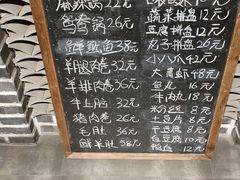 麻辣锅22元
鸳鸯锅26元
鲜鱿鱼38元
羊腿肉卷32元
羊排肉卷36元
牛上脑32元
猪肉卷26元
毛肚36元
鲜羊肚58元
蔬菜拼盘12元
豆腐拼盘12元
丸子拼盘26元
小八爪42元
大黄虾48元
鱼丸16元
牛肉丸18元
粉丝8元
土豆片8元
干豆腐8元
白豆腐10元
12元